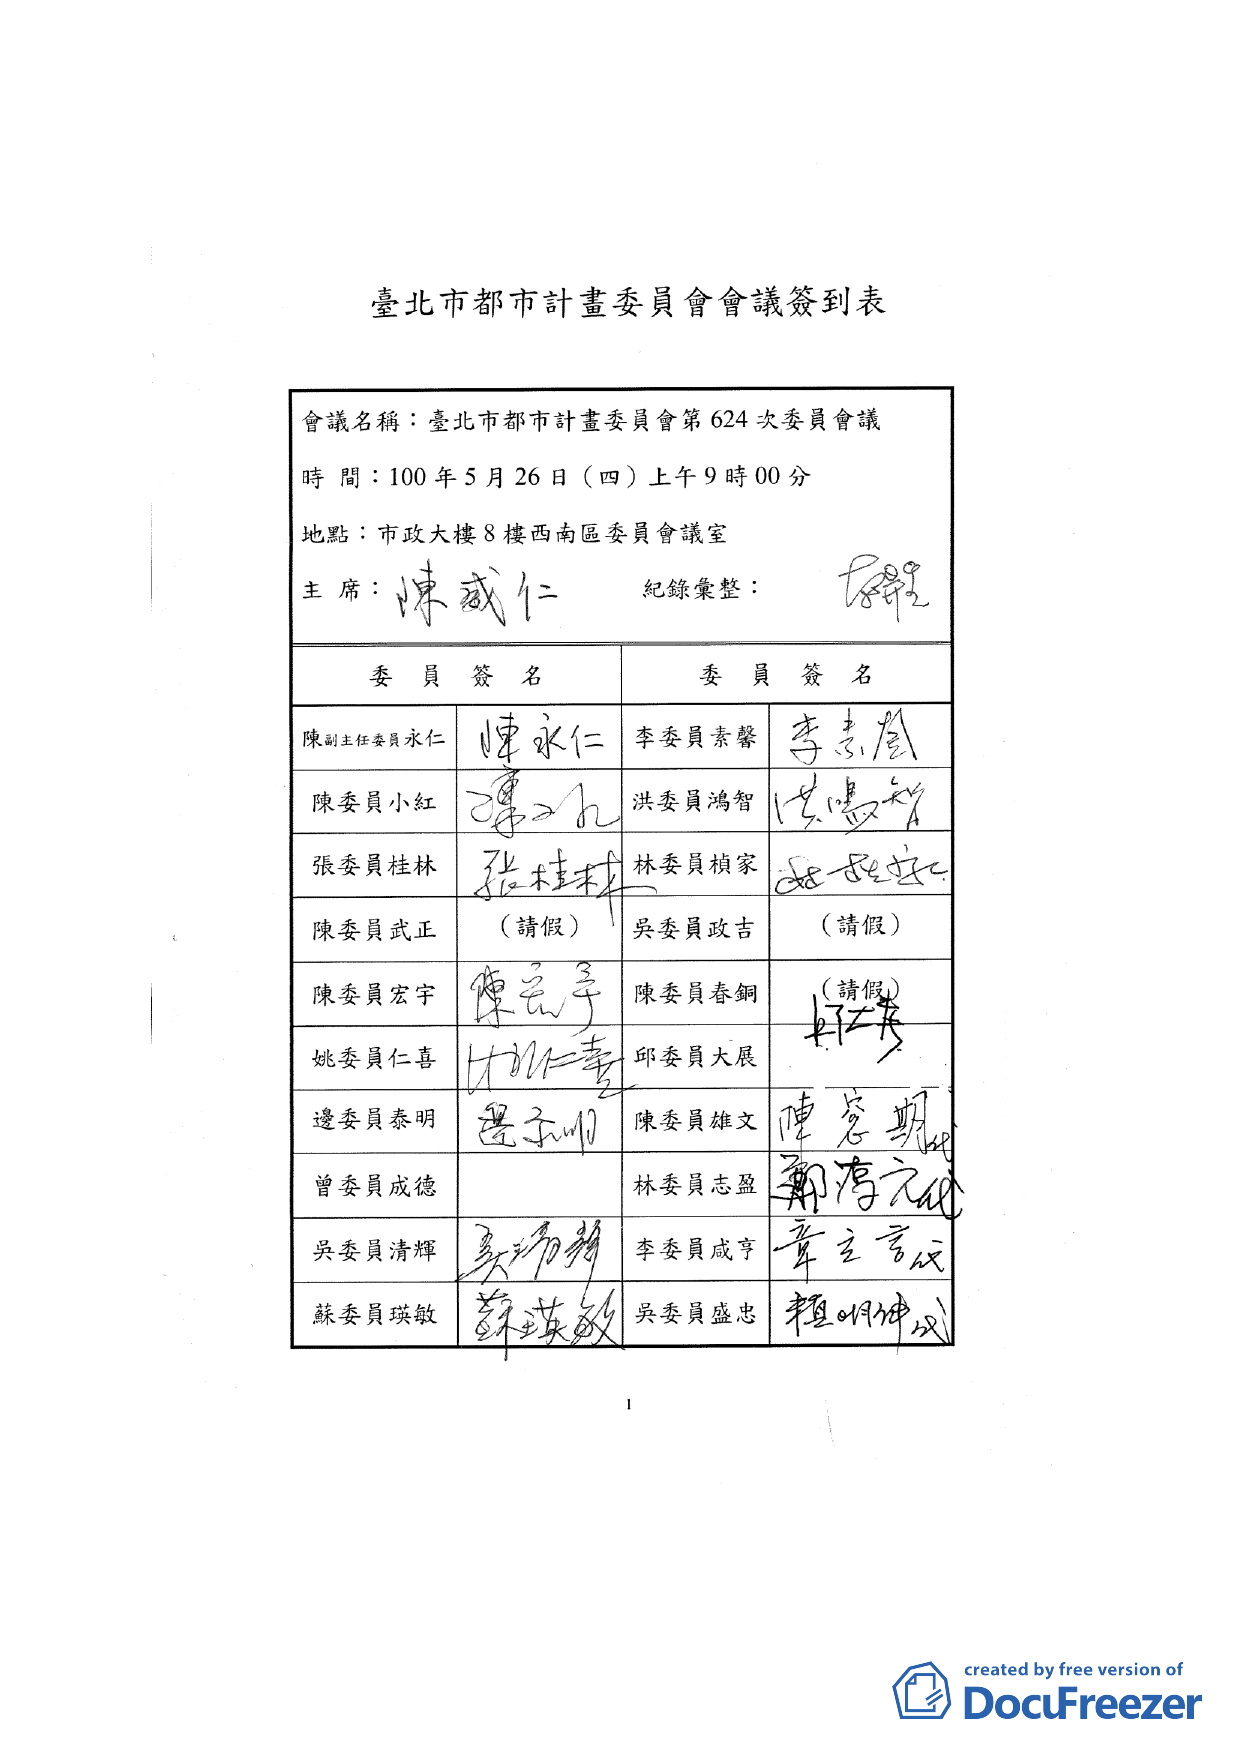 臺北市都市計畫委員會會議簽到表
會議名稱：臺北市都市計畫委員會第 624 次委員會議
時 間：100 年 5 月 26 日（四）上午 9 時 00 分
地點：市政大樓 8 樓西南區委員會議室
主 席：陳威仁 紀錄彙整：
委 員 簽 名 委 員 簽 名
陳副主任委員永仁 陳永仁 李委員素馨 李素馨
陳委員小紅 陳小紅 洪委員鴻智 洪鴻智
張委員桂林 張桂林 林委員楨家 林楨家
陳委員武正 （請假） 吳委員政吉 （請假）
陳委員宏宇 陳宏宇 陳委員春銅 （請假）
姚委員仁喜 姚仁喜 邱委員大展
邊委員泰明 邊泰明 陳委員雄文 陳 期代
曾委員成德 林委員志盈 鄭淳元代
吳委員清輝 吳清輝 李委員咸亨 章立言代
蘇委員瑛敏 蘇瑛敏 吳委員盛忠 賴明伸代
1
created by free version of
DocuFreezer